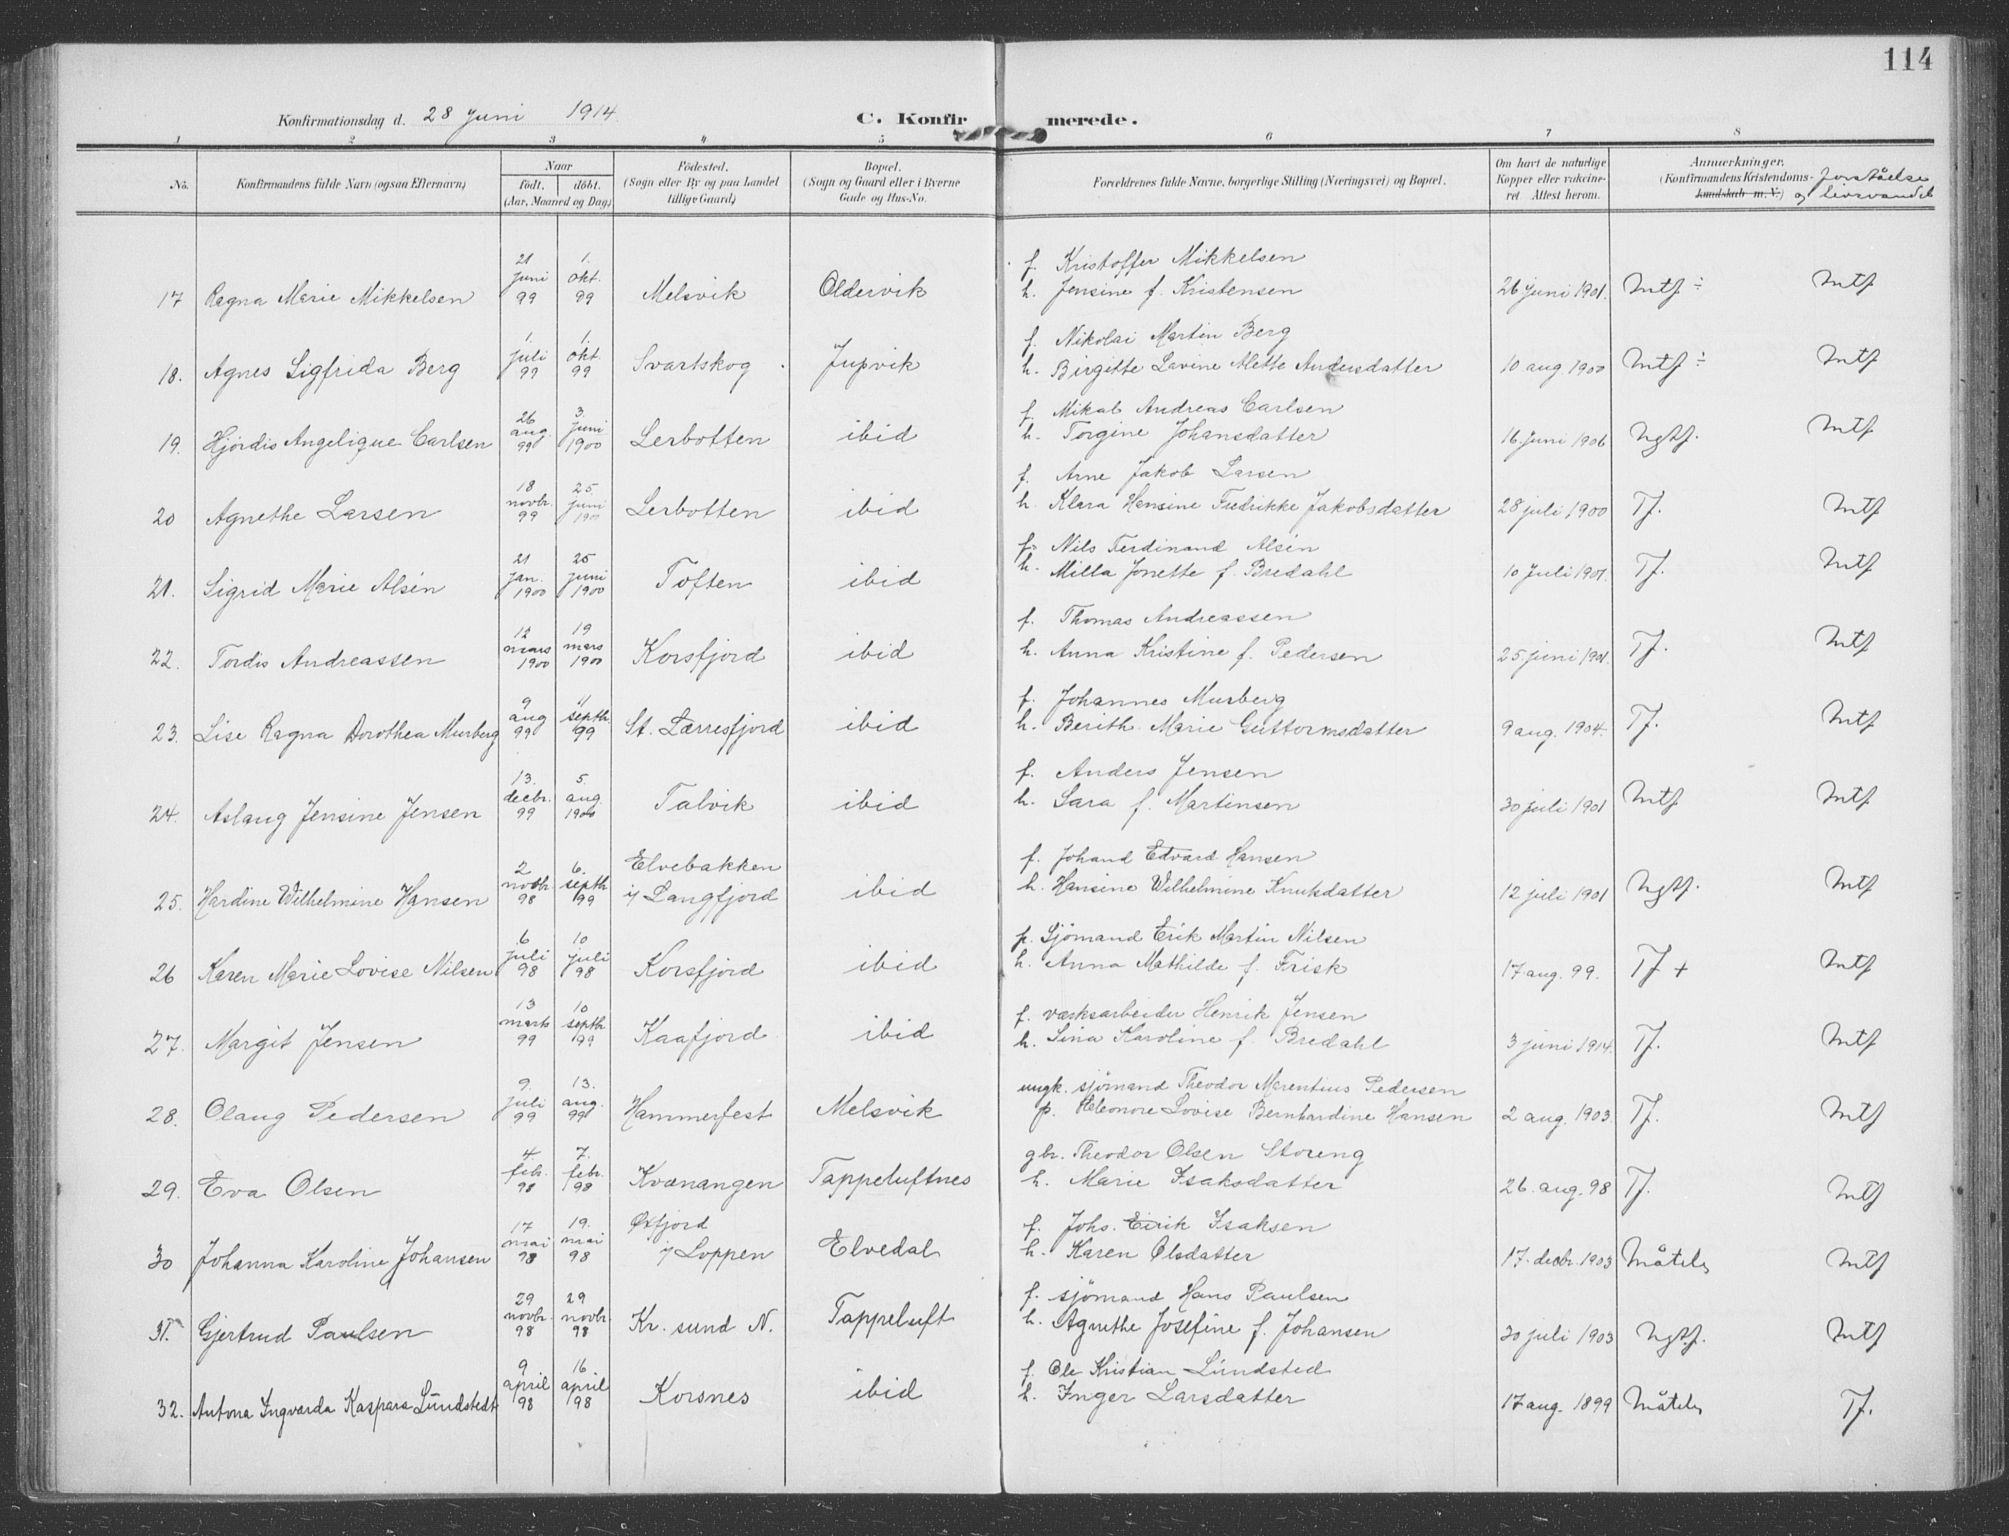 114
Konfirmationsdag d. 28 Juni 1914.
C. Konfirmerede.
1 2 3 4 5 6 7 8
No. Konfirmandens fulde Navn (ogsaa Efternavn)
Naar
födt. döbt.
(Aar, Maaned og Dag)
Födested.
(Sogn eller By og paa Landet
tillige Gaard)
Bopæl.
(Sogn og Gaard eller i Byerne
Gade og Hus-No.
Forældrenes fulde Navne, borgerlige Stilling (Næringsvei) og Bopæl.
Om havt de naturlige
Kopper eller vakcine-
ret Attest herom.
Anmærkninger.
(Konfirmandens Kristendoms- forståelse
kundskab m. V.) og livsvandel
17 Ragna Marie Mikkelsen 21 juni 99 1. okt. 99 Melsvik Oldervik f. Kristoffer Mikkelsen
h. Jensine f. Kristensen 26 juni 1901. Mtf ÷ Mtf
18. Agnes Sigfrida Berg 1. juli 99 1. okt. 99 Svartskog Jupvik f. Nikolai Martin Berg
h. Birgitte Lavine Mette Andersdatter 10 aug 1900 Mtf ÷ Mtf
19. Hjördis Angelique Carlsen 26 aug. 99 3. juni 1900 Lerbotten ibid f. Mikal Andreas Carlsen
h. Torgine Johansdatter 16. juni 1906 Ngtf. Mtf
20 Agnethe Larsen 18 novbr. 99 25 juni 1900 Lerbotten ibid f. Arne Jakob Larsen
h. Klara Hansine Fredrikke Jakobsdatter 28 juli 1900 Tf. Mtf
21. Sigrid Marie Alsén 21 jan. 1900 25 juni 1900 Toften ibid f. Nils Ferdinand Alsén
h. Milla Jonette f. Bredahl 10 Juli 1901. Tf. Mtf
22. Tordis Andreassen 12 mars 1900 19 mars 1900 Korsfjord ibid f. Thomas Andreassen
h. Anna Kristine f. Pedersen 25. juni 1901. Tf. Mtf
23. Lise Ragna Dorothea Murberg 9 aug 99 11 septh. 99 St. Lærresfjord ibid f. Johannes Murberg
h. Berith Marie Guttormsdatter 9 aug. 1904. Tf. Mtf
24. Aslaug Jensine Jensen 13. decbr. 99 5. aug. 1900 Talvik ibid f. Anders Jensen
h. Sara f. Martinsen 30 juli 1901 Mtf Mtf
25. Hardine Wilhelmine Hansen 2 novbr. 98 6. septh 99 Elvebakken
i/ Langfjord ibid f. Johand Edvard Hansen
h. Hansine Wilhelmine Knutsdatter 12 juli 1901 Ngtf. Mtf
26 Karen Marie Lovise Nilsen 6 juli 98 10 juli 98 Korsfjord ibid f. Sjömand Erik Martin Nilsen
h. Anna Mathilde f. Frisk 17 aug. 99. Tf + Mtf
27. Margit Jensen 13 marts 99 10 septh 99 Kaafjord ibid f. værksarbeider Henrik Jensen
h. Lina Karoline f. Bredahl 3 juni 1914. Tf. Mtf
28. Olaug Pedersen 9. juli 99 13. aug. 99 Hammerfest Melsvik ungk. sjömand Theodor Marentius Pedersen
p. Eleonore Lovise Bernhardine Hansen 2 aug. 1903. Tf. Mtf
29. Eva Olsen 4. febr. 98 7. febr. 98 Kvænangen Tappeluftnes gbr. Theodor Olsen Storeng
h. Marie Isaksdatter 26. aug. 98 Tf. Mtf
30 Johanna Karoline Johansen 17 mai 98 19. mai 98 Øxfjord
i/ Loppen Elvedal f. Johs. Eirik Isaksen
h. Karen Olsdatter 17. decbr. 1903 Måtel. Mtf
31. Gjertrud Paulsen 29 novbr. 98 29 novbr. 98 Kr. sund N. Tappeluft f. sjömand Hans Paulsen
h. Agnethe Josefine f. Johansen 30 juli 1903 Ngtf. Mtf
32. Antona Ingvarda Kaspara Lŭndstedt 9 april 98 16 april 98 Korsnes ibid f. Ole Kristian Lŭndsted
h. Inger Larsdatter 17 aug. 1899 Måtel. Tf.